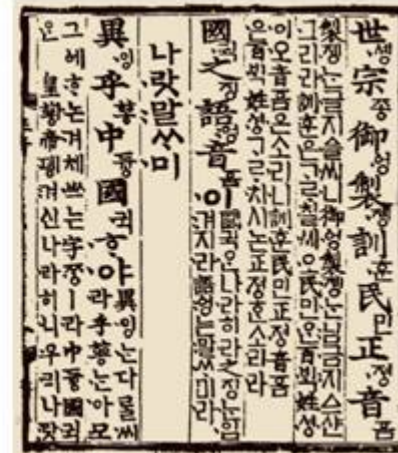 世솅宗종御엉製졩訓훈民민正졍音ᅙᅳᆷ
製졩는글지ᅀᅳᆯ씨니御엉製졩는님금지ᅀᅳ샨
그리라訓훈은ᄀᆞᄅᆞ칠씨오民민ᄋᆞᆫ百ᄇᆡᆨ姓셩
이오音ᅙᅳᆷ은소리니訓훈民민正졍音ᅙᅳᆷ
은百ᄇᆡᆨ姓셩ᄀᆞᄅᆞ치시논正졍ᄒᆞᆫ소리라
國귁之징語엉音ᅙᅳᆷ이國귁ᄋᆞᆫ나라히라之징ᄂᆞᆫ입
겨지라語엉는말ᄊᆞ미라
나랏말ᄊᆞ미
異잉乎ᅘᅩᆼ中듀ᇰ國귁ᄒᆞ야異잉ᄂᆞᆫ다ᄅᆞᆯ씨
라乎ᅘᅩᆼᄂᆞᆫ아모
그ᅌᅦᄒᆞ논겨체ᄡᅳ는字ᄍᆞᆼㅣ라中듀ᇰ國귁
ᄋᆞᆫ皇ᅘᅪᇰ帝뎽겨신나라히니우리나랏